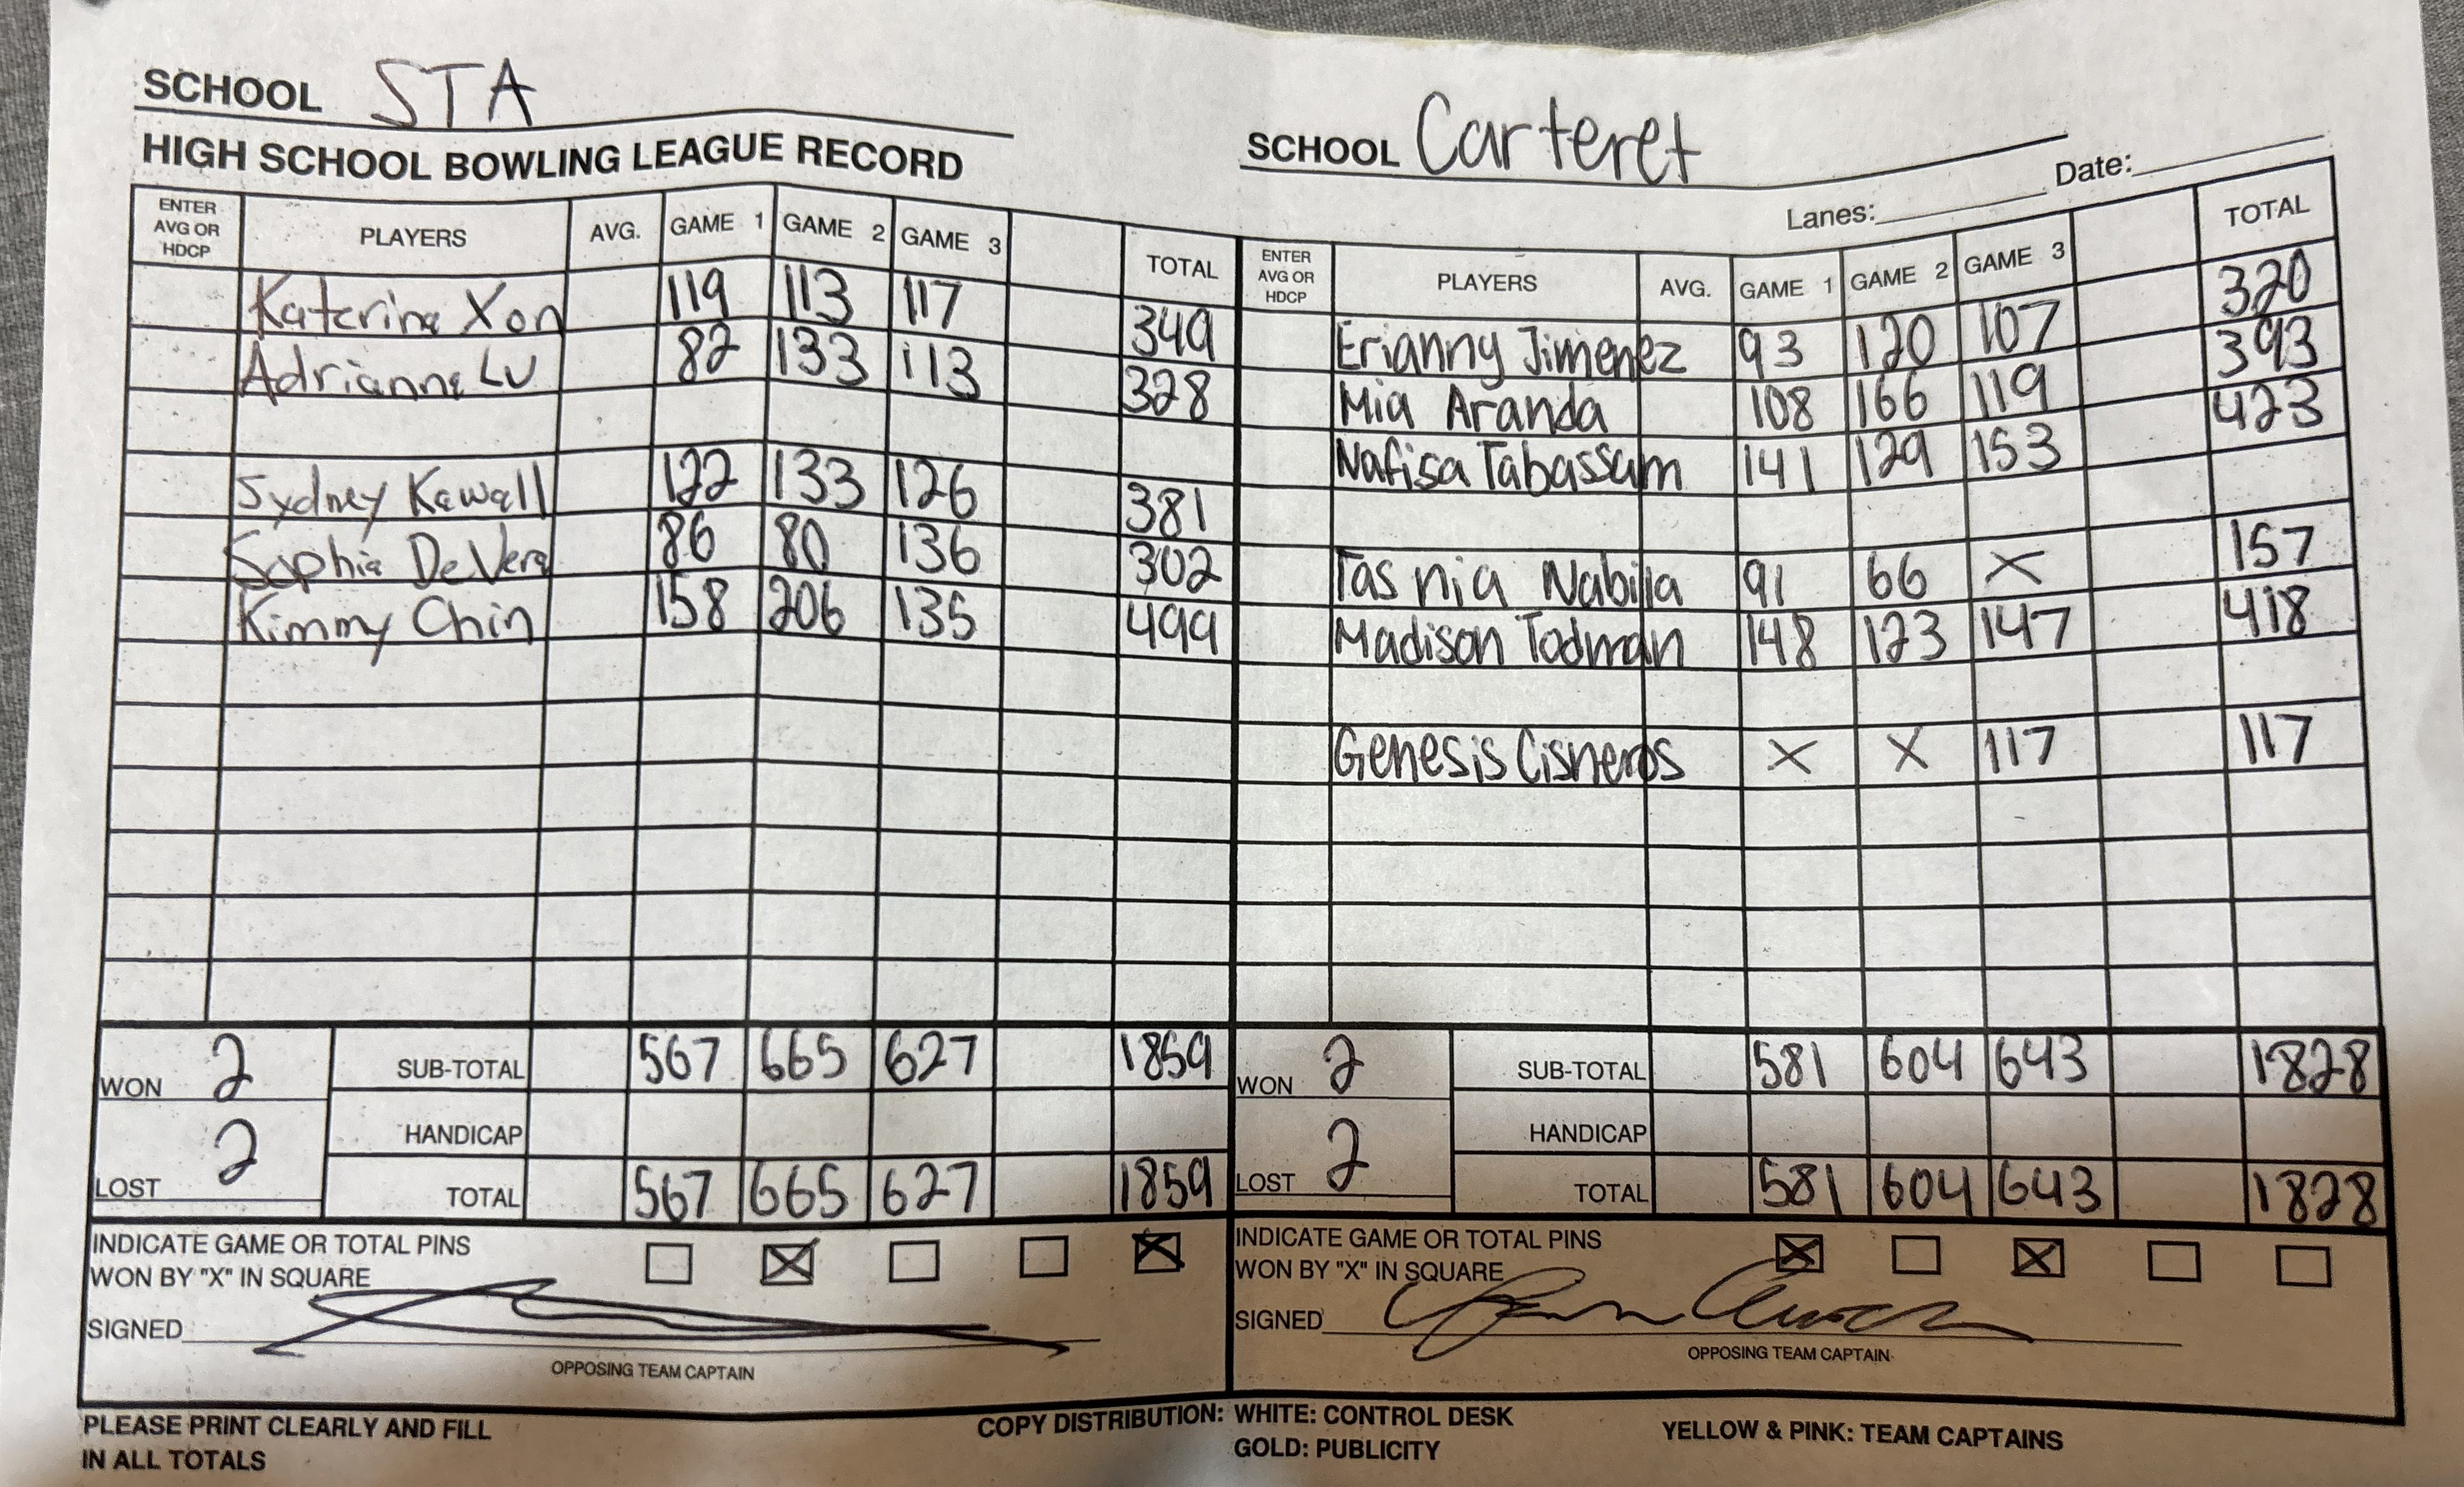 SCHOOL STA
HIGH SCHOOL BOWLING LEAGUE RECORD
ENTER AVG OR HDCP PLAYERS AVG. GAME 1 GAME 2 GAME 3 TOTAL
Katerina Xon 119 113 117 349
Adrianne Lu 82 133 113 328
Sydney Kawall 122 133 126 381
Sophia De Vera 86 80 136 302
Kimmy Chin 158 206 135 499
WON 2
LOST 2
SUB-TOTAL 567 665 627 1859
HANDICAP
TOTAL 567 665 627 1859
INDICATE GAME OR TOTAL PINS
WON BY "X" IN SQUARE
SIGNED
OPPOSING TEAM CAPTAIN
SCHOOL Carteret
Lanes: Date:
ENTER AVG OR HDCP PLAYERS AVG. GAME 1 GAME 2 GAME 3 TOTAL
Erianny Jimenez 93 120 107 320
Mia Aranda 108 166 119 393
Nafisa Tabassum 141 129 153 423
Tasnia Nabila 91 66 X 157
Madison Todman 148 123 147 418
Genesis Cisneros X X 117 117
WON 2
LOST 2
SUB-TOTAL 581 604 643 1828
HANDICAP
TOTAL 581 604 643 1828
INDICATE GAME OR TOTAL PINS
WON BY "X" IN SQUARE
SIGNED
OPPOSING TEAM CAPTAIN
PLEASE PRINT CLEARLY AND FILL
IN ALL TOTALS
COPY DISTRIBUTION: WHITE: CONTROL DESK
GOLD: PUBLICITY
YELLOW & PINK: TEAM CAPTAINS